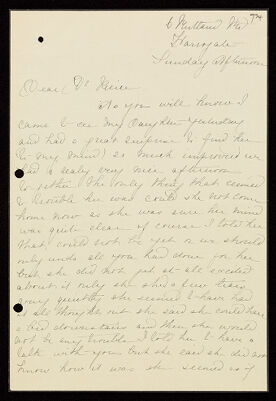 6 Rutland Rd
Harrogate
Sunday Afternoon
Dear Dr
As you will know I
came to see my Daughter yesterday
and had a great surprise to find her
to my mind so much improved we
had a really very nice afternoon
together the only thing that seemed
to trouble her was could she not come
home now as she was sure her mind
was quite clear of course I told her
that could not be yet or we should
only undo all you had done for her
but she did not get at all excited
about it only she shed a few tears
very quietly she seemed to have had
it all thought out she said she could have
a bed downstairs and then she would
not be any trouble I told her I have a
talk with you but she said she did not
know how it was she seemed so